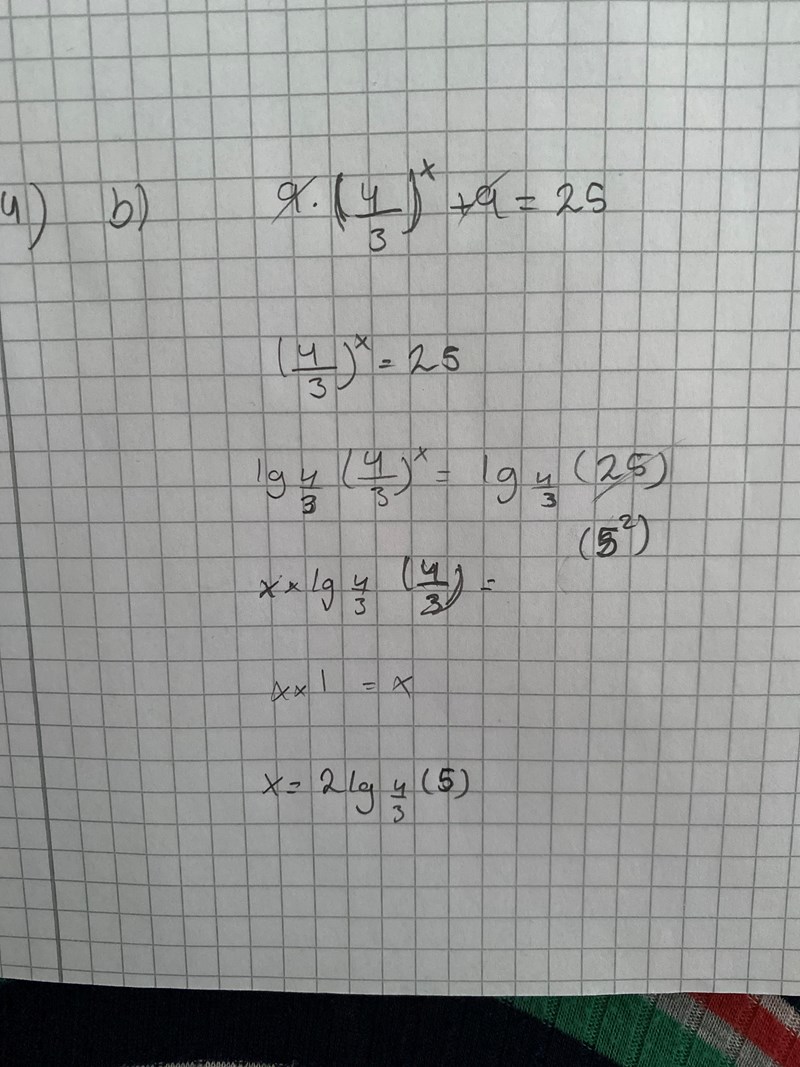 4) b) 9·(4/3)^x +9 = 25
(4/3)^x = 25
lg 4/3 (4/3)^x = lg 4/3 (25)
(5²)
x × lg 4/3 (4/3) =
x × 1 = x
x = 2 lg 4/3 (5)